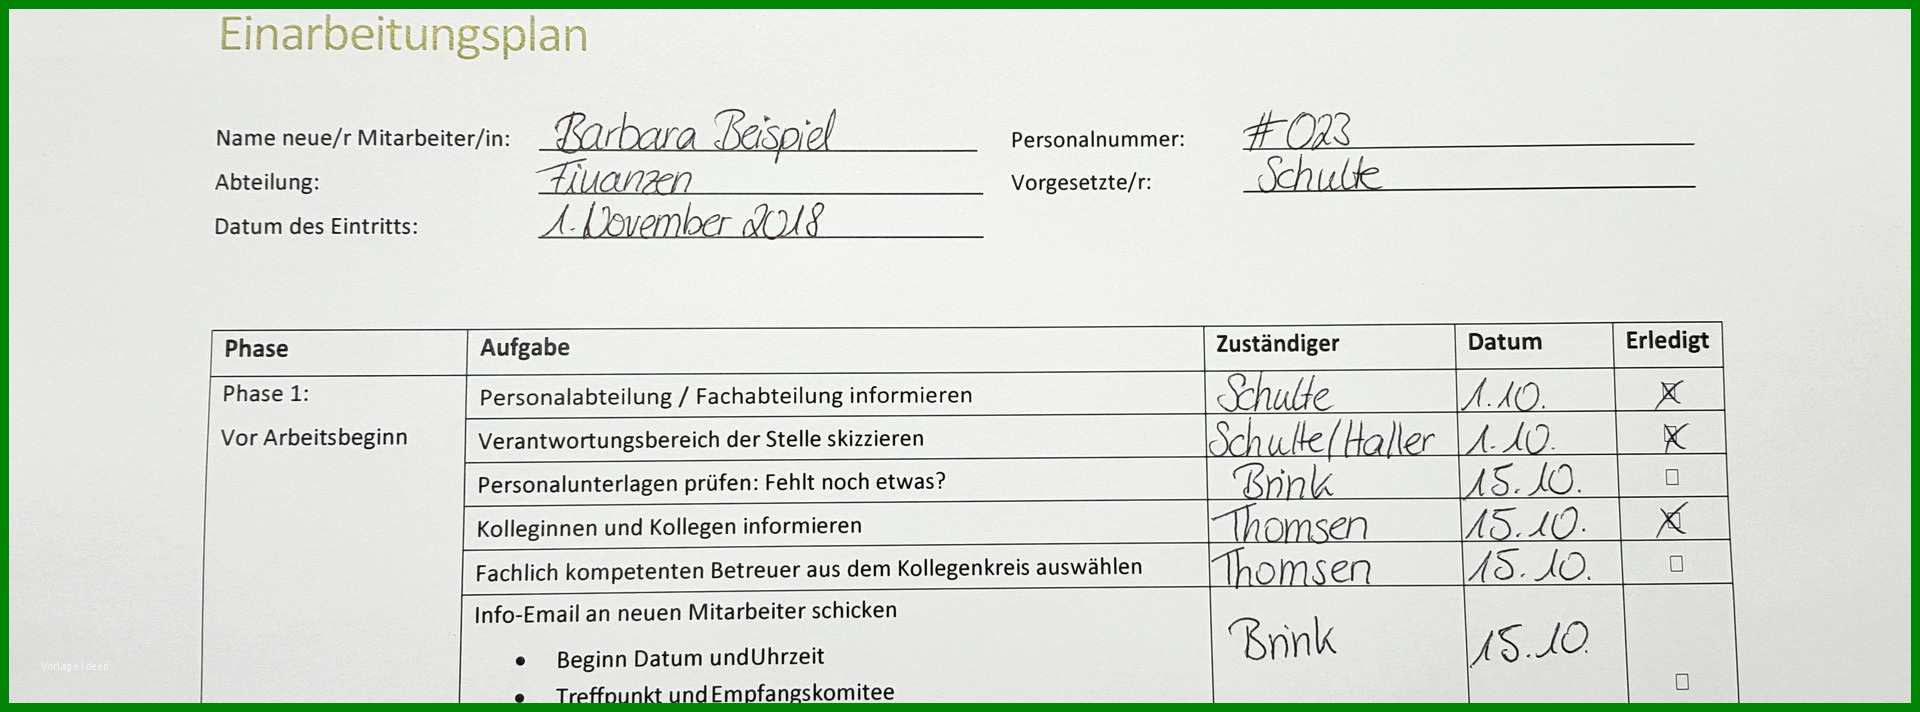 Einarbeitungsplan
Name neue/r Mitarbeiter/in: Barbara Beispiel Personalnummer: #023
Abteilung: Finanzen Vorgesetzte/r: Schulte
Datum des Eintritts: 1. November 2018
Phase Aufgabe Zuständiger Datum Erledigt
Phase 1: Personalabteilung / Fachabteilung informieren Schulte 1.10. ☒
Vor Arbeitsbeginn Verantwortungsbereich der Stelle skizzieren Schulte/Haller 1.10. ☒
Personalunterlagen prüfen: Fehlt noch etwas? Brink 15.10. ☐
Kolleginnen und Kollegen informieren Thomsen 15.10. ☒
Fachlich kompetenten Betreuer aus dem Kollegenkreis auswählen Thomsen 15.10. ☐
Info-Email an neuen Mitarbeiter schicken Brink 15.10. ☐
• Beginn Datum undUhrzeit
• Treffpunkt und Empfangskomitee
Vorlage Ideen